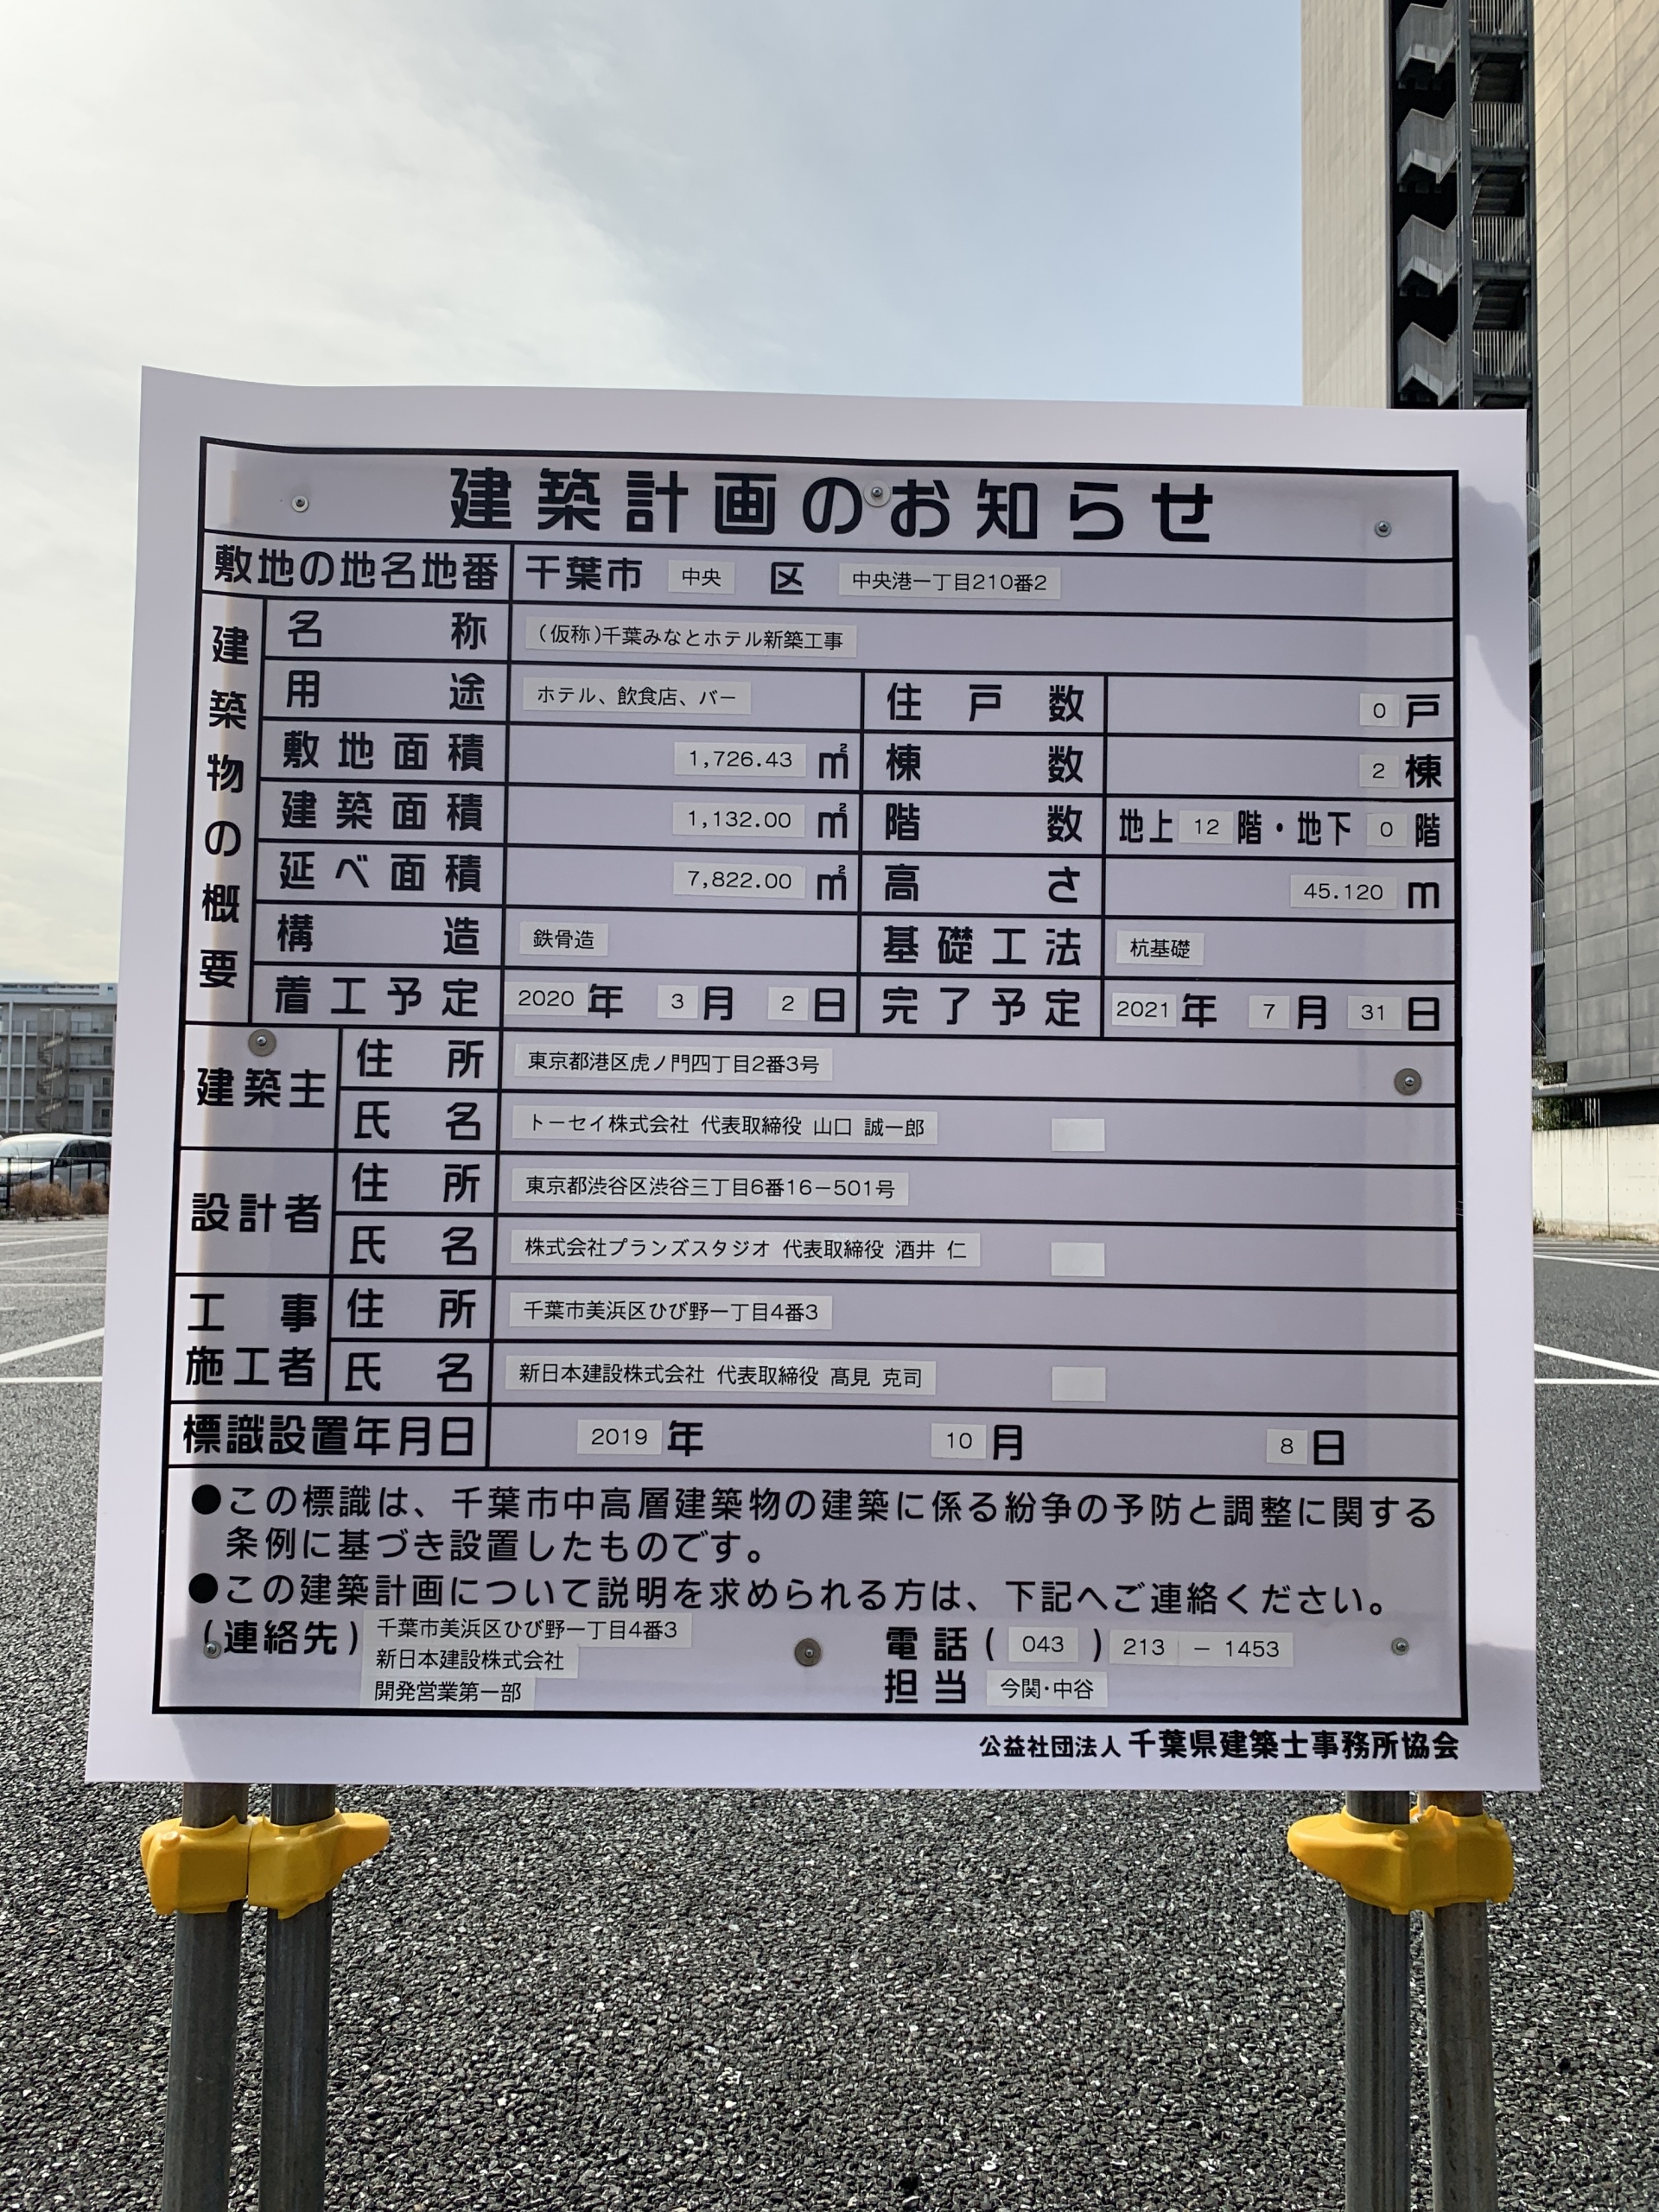 建築計画のお知らせ
敷地の地名地番 千葉市 中央 区 中央港一丁目210番2
建築物の概要
名称 (仮称)千葉みなとホテル新築工事
用途 ホテル、飲食店、バー 住戸数 0 戸
敷地面積 1,726.43 ㎡ 棟数 2 棟
建築面積 1,132.00 ㎡ 階数 地上 12 階・地下 0 階
延べ面積 7,822.00 ㎡ 高さ 45.120 m
構造 鉄骨造 基礎工法 杭基礎
着工予定 2020 年 3 月 2 日 完了予定 2021 年 7 月 31 日
建築主 住所 東京都港区虎ノ門四丁目2番3号
氏名 トーセイ株式会社 代表取締役 山口 誠一郎
設計者 住所 東京都渋谷区渋谷三丁目6番16-501号
氏名 株式会社プランズスタジオ 代表取締役 酒井 仁
工事施工者 住所 千葉市美浜区ひび野一丁目4番3
氏名 新日本建設株式会社 代表取締役 髙見 克司
標識設置年月日 2019 年 10 月 8 日
●この標識は、千葉市中高層建築物の建築に係る紛争の予防と調整に関する
条例に基づき設置したものです。
●この建築計画について説明を求められる方は、下記へご連絡ください。
(連絡先) 千葉市美浜区ひび野一丁目4番3
新日本建設株式会社
開発営業第一部
電話(043)213-1453
担当 今関・中谷
公益社団法人 千葉県建築士事務所協会